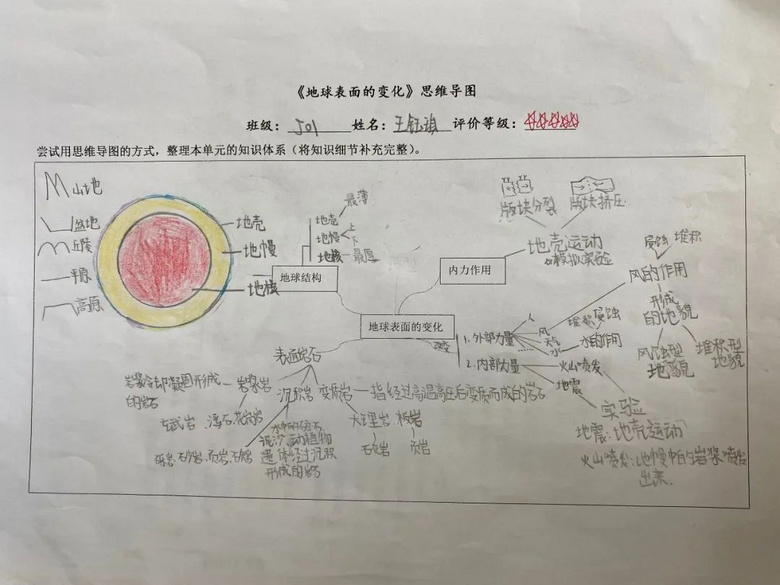 《地球表面的变化》思维导图
班级: 501 姓名: 王钰 评价等级:
尝试用思维导图的方式，整理本单元的知识体系（将知识细节补充完整）。
山地
盆地
丘陵
平原
高原
地壳
地幔
地核
最薄
地壳
地幔
上
下
地核
最厚
地球结构
版块分裂
版块挤压
地壳运动
模拟实验
内力作用
地球表面的变化
1.外部力量
人
风
天气
水
堆积
侵蚀
水的作用
侵蚀
堆积
风的作用
形成
的地貌
风蚀型
地貌
堆积型
地貌
2.内部力量
火山喷发
地震
实验
地震:地壳运动
火山喷发:地幔中的岩浆喷发
出来.
表面岩石
岩浆岩
岩浆冷却凝固形成
的岩石
玄武岩
浮石
花岗岩
沉积岩
水中的碎石
泥沙、动植物
遗体经过沉积
形成的岩石
砾岩、砂岩、页岩、石灰岩
变质岩
指经过高温高压后变质而成的岩石
大理岩
石灰岩
板岩
页岩